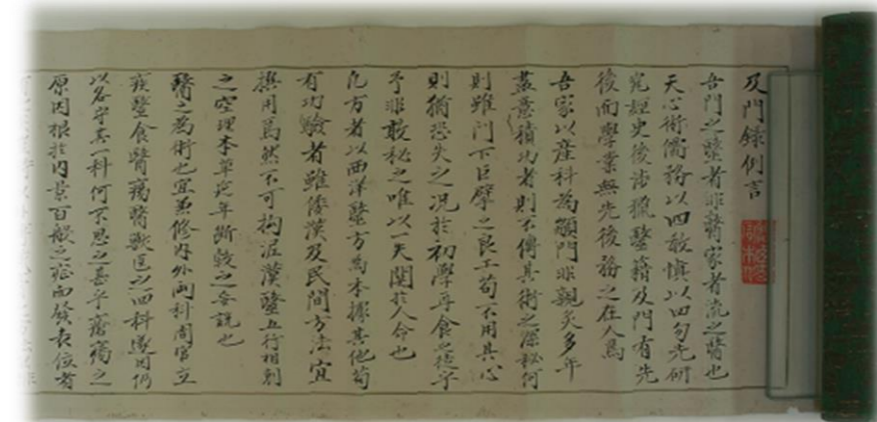 及門録例言
吾門之醫者非醫家者流之醫也
天心術儒務以四教慎以四勿先研
究經史後涉獵醫籍及門有先
後而學業無先後務之在人焉
吾家以産科為顓門非親炙多年
蓋意積功者則不傳其術之深秘何
則雖門下巨擘之良工苟不用其心
則猶恐失之况於初學再食之徒乎
予非敢秘之唯以一天関於人命也
凡方者以西洋醫方為本據其他苟
有功驗者雖倭漢及民間方法宜
撰用焉然不可拘泥漢醫五行相剋
之空理本草
年断骸之
説也
醫之為術也宜兼修内外両科周官立
疾醫食醫瘍醫獣医之四科
因仍
以各守其一科何不思之甚乎
瘍之
原因根於内景百般之
而發表位者